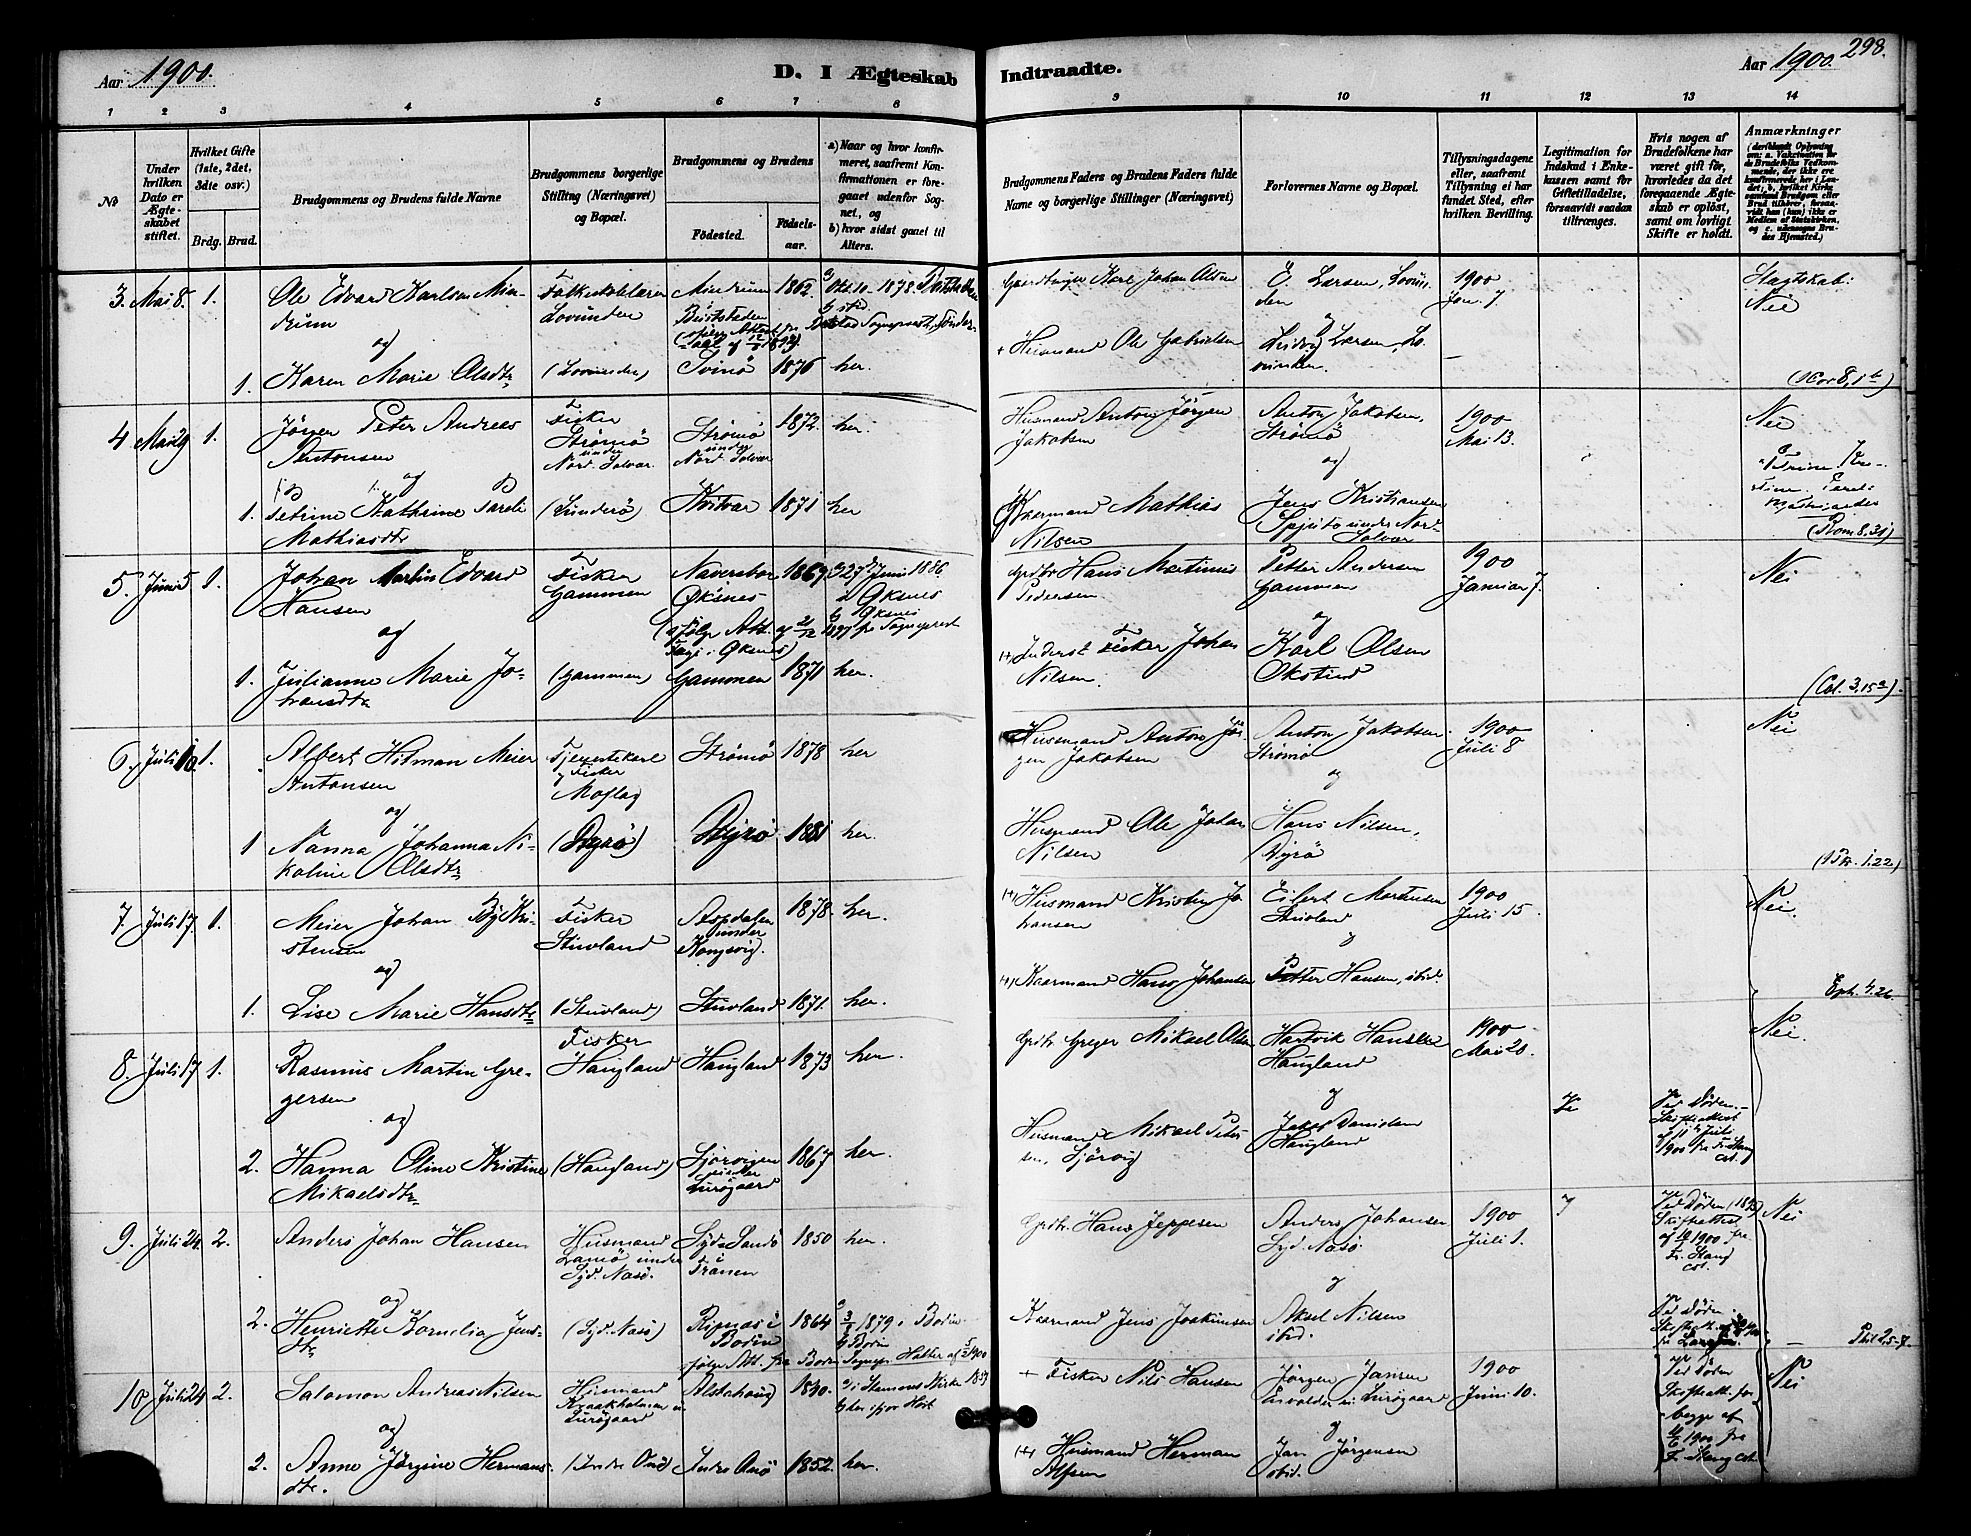 Aar 1900.
D. I Ægteskab
Indtraadte.
Aar 1900. 298.
1 2 3 4 5 6 7 8 9 10 11 12 13 14
No
Under hvilken Dato er Ægteskabet stiftet.
Hvilket Gifte (1ste, 2det, 3die osv.)
Brdg. Brud.
Brudgommens og Brudens fulde Navne
Brudgommens borgerlige Stilling (Næringsvei) og Bopæl.
Brudgommens og Brudens
Fødested. Fødselsaar.
a) Naar og hvor konfirmeret, saafremt Konfirmationen er foregaaet udenfor Sognet, og
b) hvor sidst gaaet til Alters.
Brudgommens Faders og Brudens Faders fulde Navne og borgerlige Stillinger (Næringsvei)
Forlovernes Navne og Bopæl.
Tillysningsdagene eller, saafremt Tillysning ei har fundet Sted, efter hvilken Bevilling.
Legitimation for Indskud i Enkekassen samt for Giftetilladelse, forsaavidt saadan tiltrænges.
Hvis nogen af Brudefolkene har været gift før, hvorledes da det foregaaende Ægteskab er opløst, samt om lovligt Skifte er holdt.
Anmærkninger
3. Mai 8. 1. Ole Edvard Karlsen Mindrum
Folkeskolelærer Lovunden
Mindrum
1862.
a Okt. 10. 1878.
Gaardbruger Karl Johan Olsen
E. Larsen, Lovunden
1900 Jan. 7
Slagtskab: Nei
og
1. Karen Marie Olsdtr
(Lovunden) Svinø 1876 her.
+ Husmand Ole Gabrielsen
Ludvig Larsen, Lovunden.
(1Cor 8,1b)
4 Mai 29 1. Jørgen Peter Andreas Antonsen
Fisker Strømø under Nord. Solvær
Strømø under Nord. Solvær
1872. her.
Husmand Anton Jørgen Jakobsen
Anton Jakobsen, Strømø
1900 Mai 13.
Nei
og
1. Petrine Kathrine Pareli Mathiasdtr
(Sunderø) Kvitvær 1871 her
Kaarmand Mathias Nilsen
Jens Kristiansen Spjuto under Nord-Solvær
(Rom 8.31)
5. Juni 5 1. Johan Martin Edvard Hansen
Fisker Gammen
Øksnes
1867.
27 Juni 1886. i Øksnes
b Øksnes
Grdbr Hans Martinus Pedersen
Petter Andersen Gammen
1900 Januar 7.
Nei
og
1. Julianne Marie Johansdtr
(Gammen) Gammen 1871 her.
(+) Inderst Fisker Johan Nilsen.
Karl Olsen Okstind
(Col. 3.15a).
6. Juli 10. 1. Albert Hitman Meier Antonsen
Tjenestekarl og Fisker Moflag
Strømø 1878 her
Husmand Anton Jørgen Jakobsen
Anton Jakobsen Strømø
1900 Juli 8
Nei
og
1 Nanna Johanna Nikoline Olsdtr
(Dyrø) Dyrø 1881 her.
Husmand Ole Johan Nilsen
Hans Nilsen, Dyrø
(1Pt. 1.22)
7. Juli 17. 1. Meier Johan By Kristensen
Fisker Stuvland
Aspdalen under Kongsvig.
1878. her.
(+) Husmand Kristen Johansen
Eilert Mortensen Stuvland
1900 Juli 15.
Nei.
og
1. Lise Marie Hansdtr
(Stuvland) Stuvland 1871. her.
(+) Kaarmand Hans Johansen
Petter Hansen, ibid.
Eph. 4.26.
8. Juli 17 1. Rasmus Martin Gregersen
Fisker Haugland
Haugland 1873 her.
Grdbr. Greger Mikael Olsen
Hartvik Hansen Haugland
1900 Mai 20.
Nei.
og
2. Hanna Oline Kristine Mikaelsdtr
(Haugland)
Sjørvigen under Lurøgaard
1867 her.
Husmand Mikael Petersen, Sjørvig
Jakob Danielsen Haugland
Ved Døden. Skifteattest af 11te Juli 1900 fra F. Stang cst.
9. Juli 24. 2. Anders Johan Hansen
Husmand Lamø under Syd. Nasø.
Syd Sandø i Trænen
1850 her.
Grdbr. Hans Jeppesen
Anders Johansen Syd. Nasø.
1900 Juli 1.
Nei
og
2. Henriette Kornelia Jensdtr
(Syd. Nasø)
Ripnæs i Bodin
1864
1879 i Bodin.
b Bodin
Kaarmand Jens Joakimsen
Aksel Nilsen ibid.
Phil 2.5-7.
10 Juli 24 2. Salomon Andreas Nilsen
Husmand Kraakholmen u. Lurøgaard
Alstahoug 1840.
+ Fisker Nils Hansen
Jørgen Jansen
1900 Juni 10.
Ved Døden Skifteatt. for begge af 1900 fra F. Stang cst.
Nei
og
2. Anne Jørgine Hermansdtr.
(Indre Onø) Indre Onø 1852. her.
(+) Husmand Herman Alfsen
Jan Jørgensen ibid.